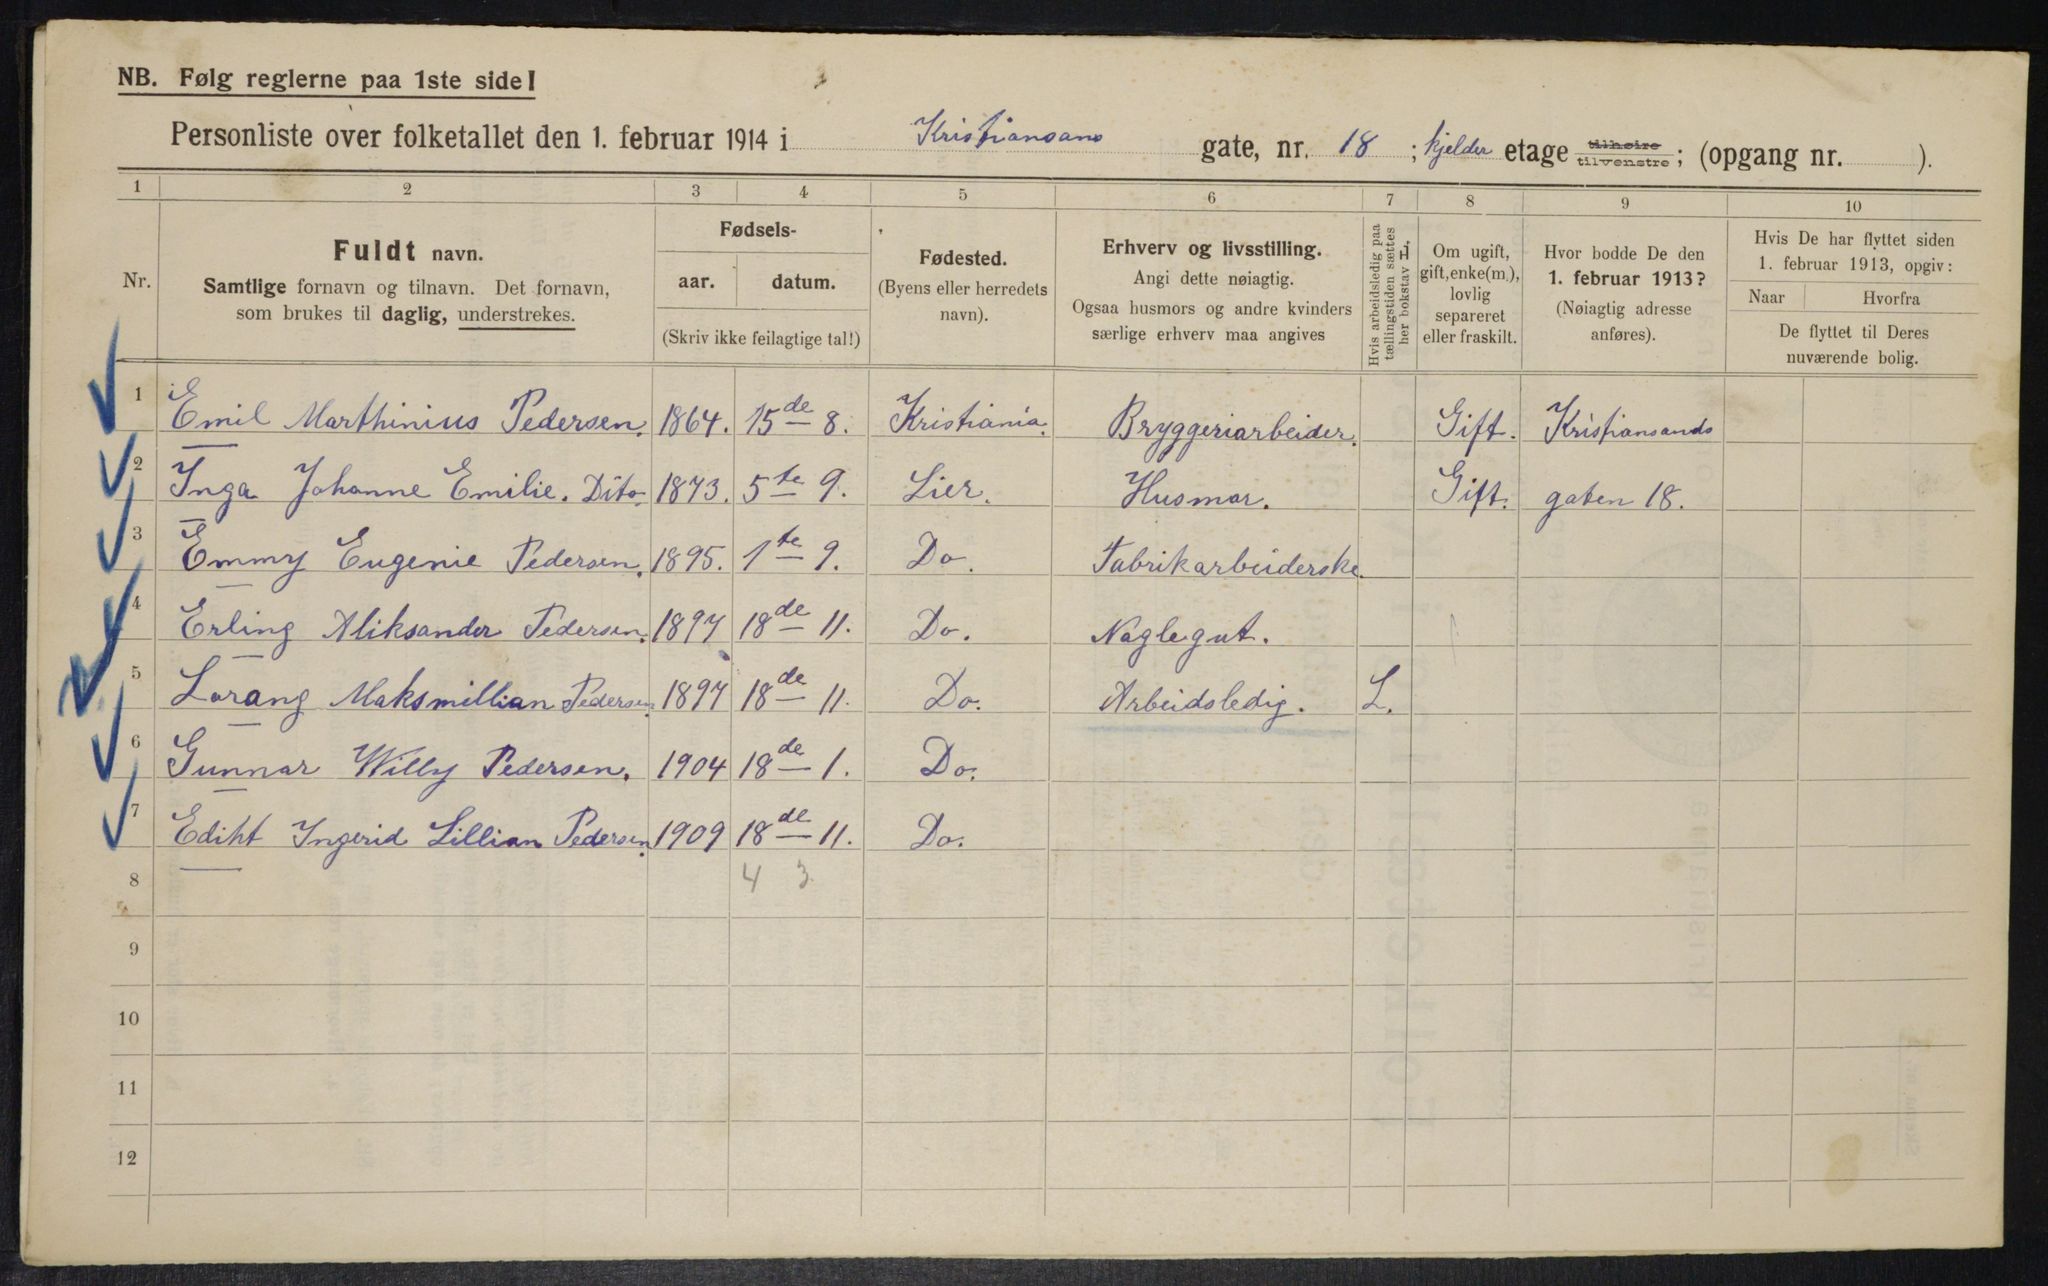 NB. Følg reglerne paa 1ste side!
Personliste over folketallet den 1. februar 1914 i Kristiansans gate, nr. 18 ; kjelder etage tilhøire tilvenstre ; (opgang nr. ).
1 2 3 4 5 6 7 8 9 10
Nr.
Fuldt navn.
Samtlige fornavn og tilnavn. Det fornavn,
som brukes til daglig, understrekes.
Fødsels-
aar. datum.
(Skriv ikke feilagtige tal!)
Fødested.
(Byens eller herredets
navn).
Erhverv og livsstilling.
Angi dette nøiagtig.
Ogsaa husmors og andre kvinders
særlige erhverv maa angives
Hvis arbeidsledig paa
tællingstiden sættes
her bokstav L.
Om ugift,
gift, enke(m.),
lovlig
separeret
eller fraskilt.
Hvor bodde De den
1. februar 1913?
(Nøiagtig adresse
anføres).
Hvis De har flyttet siden
1. februar 1913, opgiv:
Naar Hvorfra
De flyttet til Deres
nuværende bolig.
1 Emil Marthinius Pedersen. 1864. 15de 8. Kristiania. Bryggeriarbeider. Gift. Kristiansands
2 Inga Johanne Emilie. Dito 1873. 5te 9. Lier. Husmor. Gift. gaten 18.
3 Emmy Eugenie Pedersen. 1895. 1te 9. Do. Fabrikarbeiderske.
4 Erling Aliksander Pedersen. 1897 18de 11. Do. Naglegut.
5 Lorang Maksmillian Pedersen. 1897 18de 11. Do. Arbeidsledig. L.
6 Gunnar Willy Pedersen. 1904 18de 1. Do.
7 Edikt Ingerid Lillian Pedersen. 1909 18de 11. Do.
8 4 3
9
10
11
12